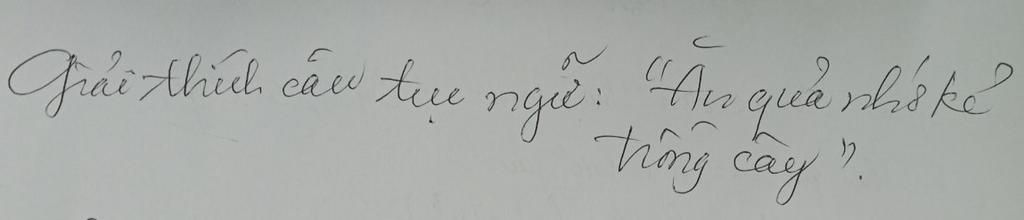 Giải thích câu tục ngữ: "Ăn quả nhớ kẻ
trồng cây".